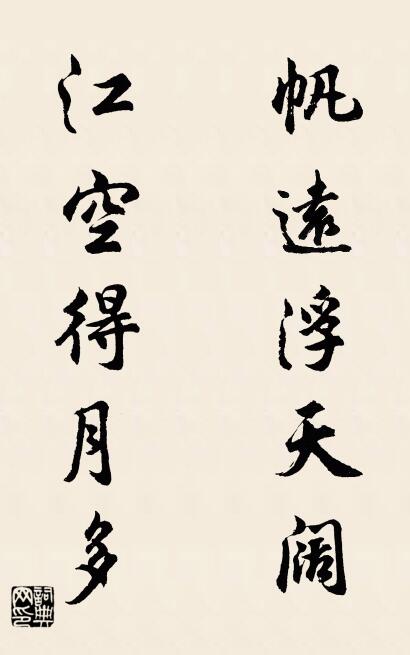 帆遠浮天阔
江空得月多
詞典網印